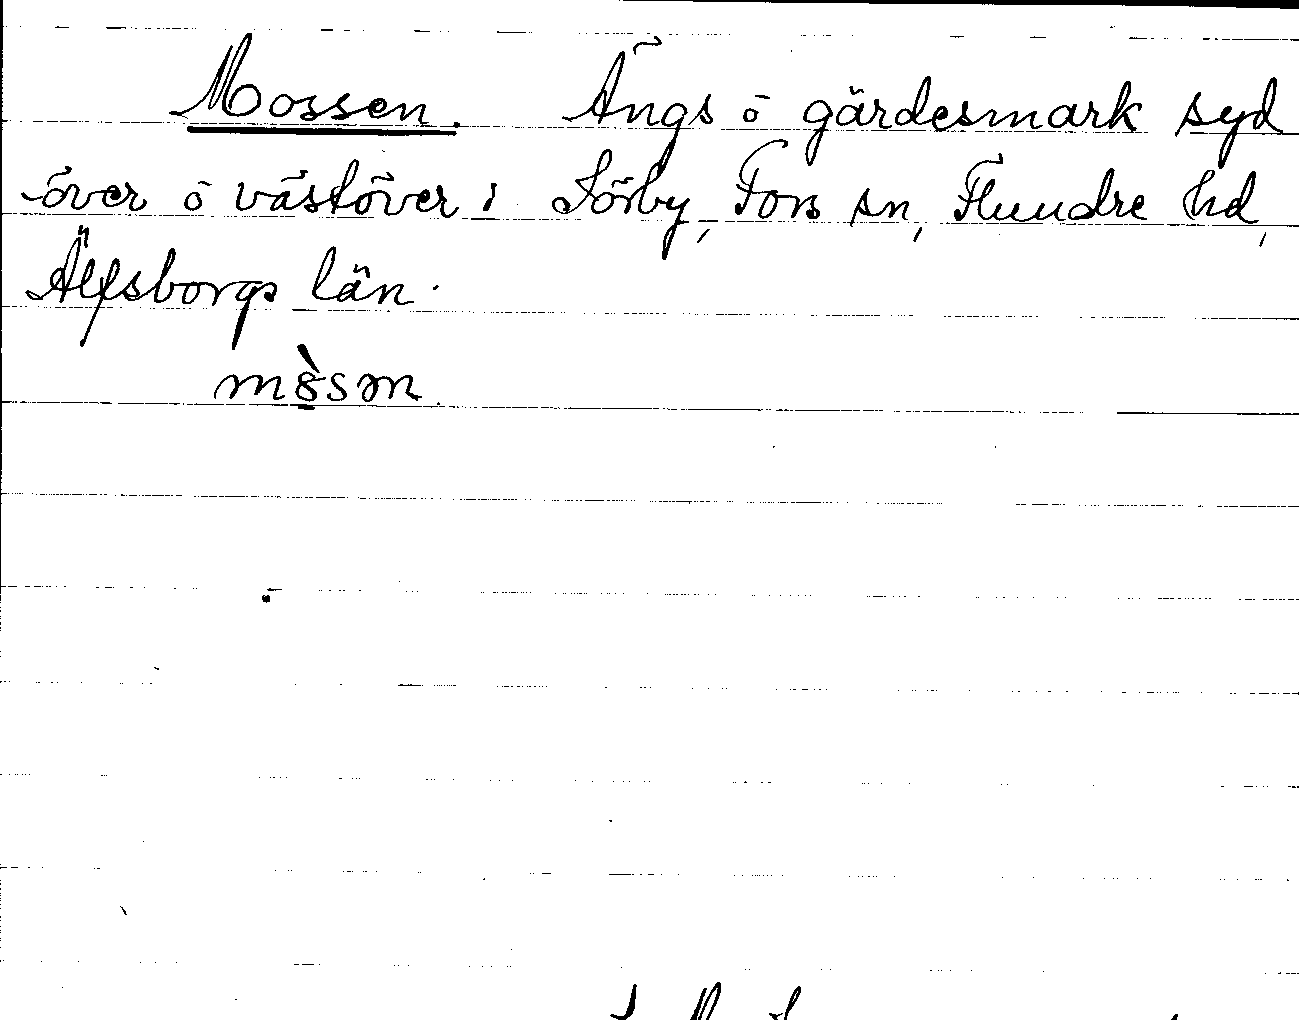 Mossen. Ängs ö gärdesmark syd
över ö västöver i Sörby, Fors sn, Flundre hd,
Älfsborgs län.